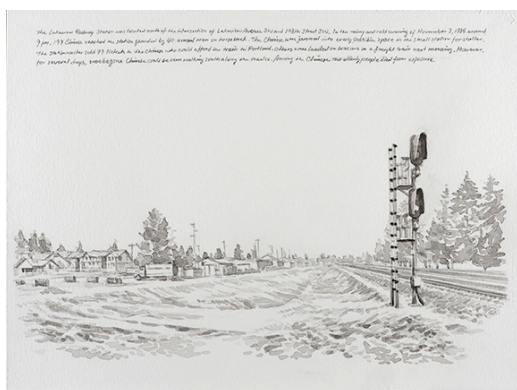 The Lakeview Railway Station was located north of the intersection of Lakeview Avenue SW and 108th Street SW. In the rainy and cold evening of November 3, 1885 around
9 pm, 197 Chinese reached the station guarded by 40 armed men on horseback. The Chinese were jammed into every possible space in the small station for shelter.
The stationmaster sold 77 tickets to the Chinese who could afford the train to Portland. Others were loaded on boxcars on a freight train next morning. However,
for several days, Chinese could be seen walking south along the tracks. Among the Chinese, two elderly people died from exposure.